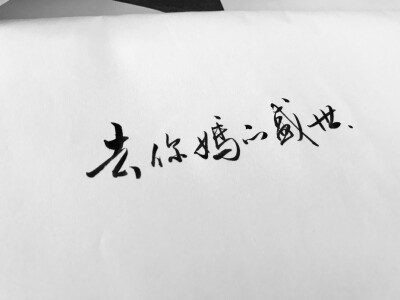 去你媽的盛世、